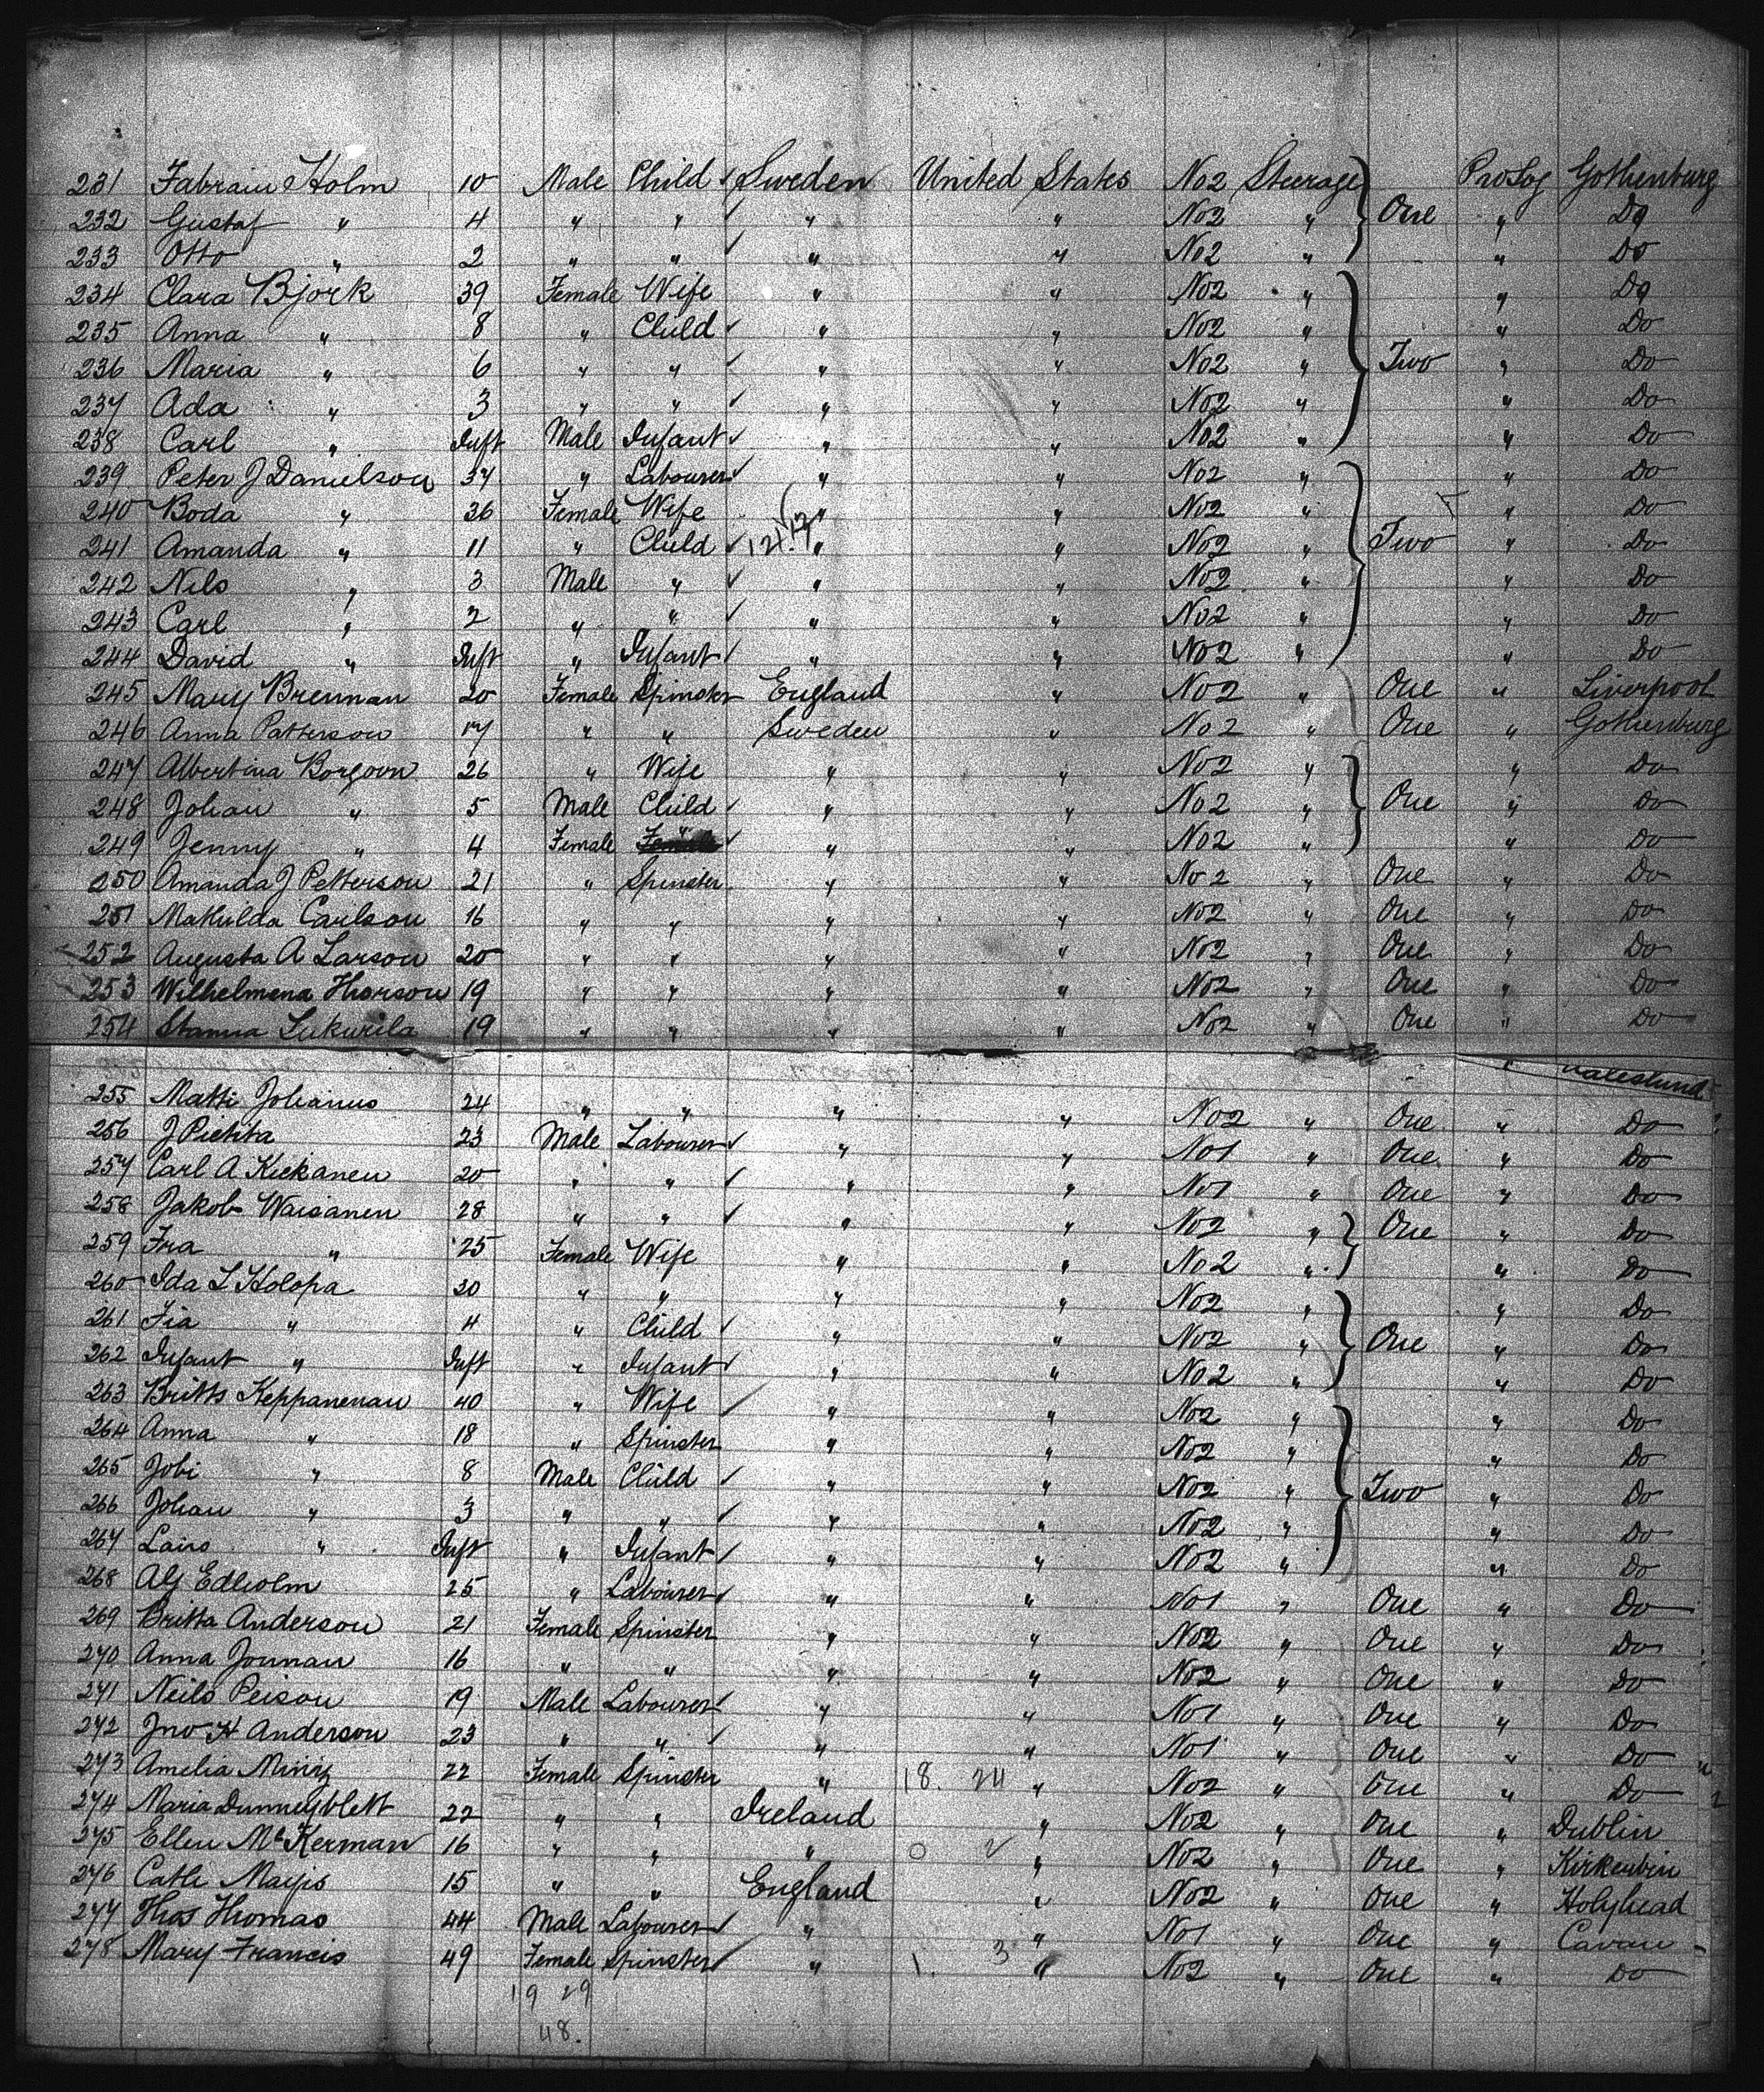 231 Fabrain Holm 10 Male Child Sweden United States No2 Steerage ProSog Gothenburg
232 Gustaf " 4 " " " " No2 " One " Do
233 Otto " 2 " " " " No2 " " Do
234 Clara Bjork 39 Female Wife " " No2 " " Do
235 Anna " 8 " Child " " No2 " " Do
236 Maria " 6 " " " " No2 " Two " Do
237 Ada " 3 " " " " No2 " " Do
238 Carl " Inft Male Infant " " No2 " " Do
239 Peter J Danielson 37 " Labourer " " No2 " " Do
240 Boda " 36 Female Wife " " No2 " " Do
241 Amanda " 11 " Child " " No2 " Two " Do
242 Nils " 3 Male " " " No2 " " Do
243 Carl " 2 " " " " No2 " " Do
244 David " Inft " Infant " " No2 " " Do
245 Mary Brennan 20 Female Spinster England " No2 " One " Liverpool
246 Anna Patterson 17 " " Sweden " No2 " One " Gothenburg
247 Albertina Borgoon 26 " Wife " " No2 " " Do
248 Johan " 5 Male Child " " No2 " One " Do
249 Jenny " 4 Female " " " No2 " " Do
250 Amanda J Petterson 21 " Spinster " " No2 " One " Do
251 Mathilda Carlson 16 " " " " No2 " One " Do
252 Augusta A Larson 20 " " " " No2 " One " Do
253 Wilhelmena Thorson 19 " " " " No2 " One " Do
254 Stanna Lukurila 19 " " " " No2 " One " Do
255 Matti Johanus 24 " " " " No2 " One " Do
256 J Pietita 23 Male Labourer " " No1 " One " Do
257 Carl A Kiekanen 20 " " " " No1 " One " Do
258 Jakob Waisanen 28 " " " " No2 " One " Do
259 Fra " 25 Female Wife " " No2 " " Do
260 Ida L Holopa 30 " " " " No2 " " Do
261 Fia " 4 " Child " " No2 " One " Do
262 Infant " Inft " Infant " " No2 " " Do
263 Britts Keppanenau 40 " Wife " " No2 " " Do
264 Anna " 18 " Spinster " " No2 " " Do
265 Jobi " 8 Male Child " " No2 " Two " Do
266 Johan " 3 " " " " No2 " " Do
267 Lairs " Inft " Infant " " No2 " " Do
268 Alf Edholm 25 " Labourer " " No1 " One " Do
269 Britta Anderson 21 Female Spinster " " No2 " One " Do
270 Anna Jonnau 16 " " " " No2 " One " Do
271 Neils Peison 19 Male Labourer " " No1 " One " Do
272 Jno H Anderson 23 " " " " No1 " One " Do
273 Amelia 22 Female Spinster " 18. 24 " No2 " One " Do
274 Maria 22 " " Ireland " No2 " One " Dublin
275 Ellen McKerman 16 " " " 0 2 " No2 " One " Kirkeubin
276 Cath Mayis 15 " " England " No2 " One " Holyhead
277 Thos Thomas 44 Male Labourer " " No1 " One " Cavan
278 Mary Francis 49 Female Spinster " 1. 3 " No2 " One " Do
19 29
48.